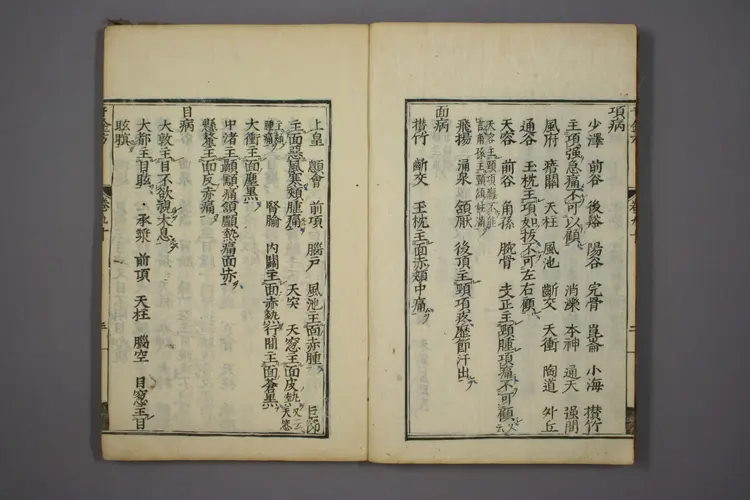 項病
少澤 前谷 後谿 陽谷 完骨 崑崙 小海 攅竹
主項强急痛不可以顧 消濼 本神 通天 强間
風府 瘖門 天柱 風池 齗交 天衝 陶道 外丘
通谷 玉枕主項如拔不可左右顧
天容 前谷 角孫 腕骨 支正主頸腫項痛不可顧
飛揚 涌泉 頷厭 後頂主頸項疼歷節汗出
面病
攅竹 齗交 玉枕主面赤頰中痛
上皇 顖會 前項 腦戸 風池主面赤腫
主面惡風寒頰腫痛 天突 天窓主面皮熱
腎腧 内關主面赤熱行間主面蒼黑
大衝主面塵黑
中渚主顳顬痛頷顱熱痛面赤
懸釐主面皮赤痛
目病
大敦主目不欲視太息
大都主目眩 承漿 前頂 天柱 腦空 目窓主目
眩瞑